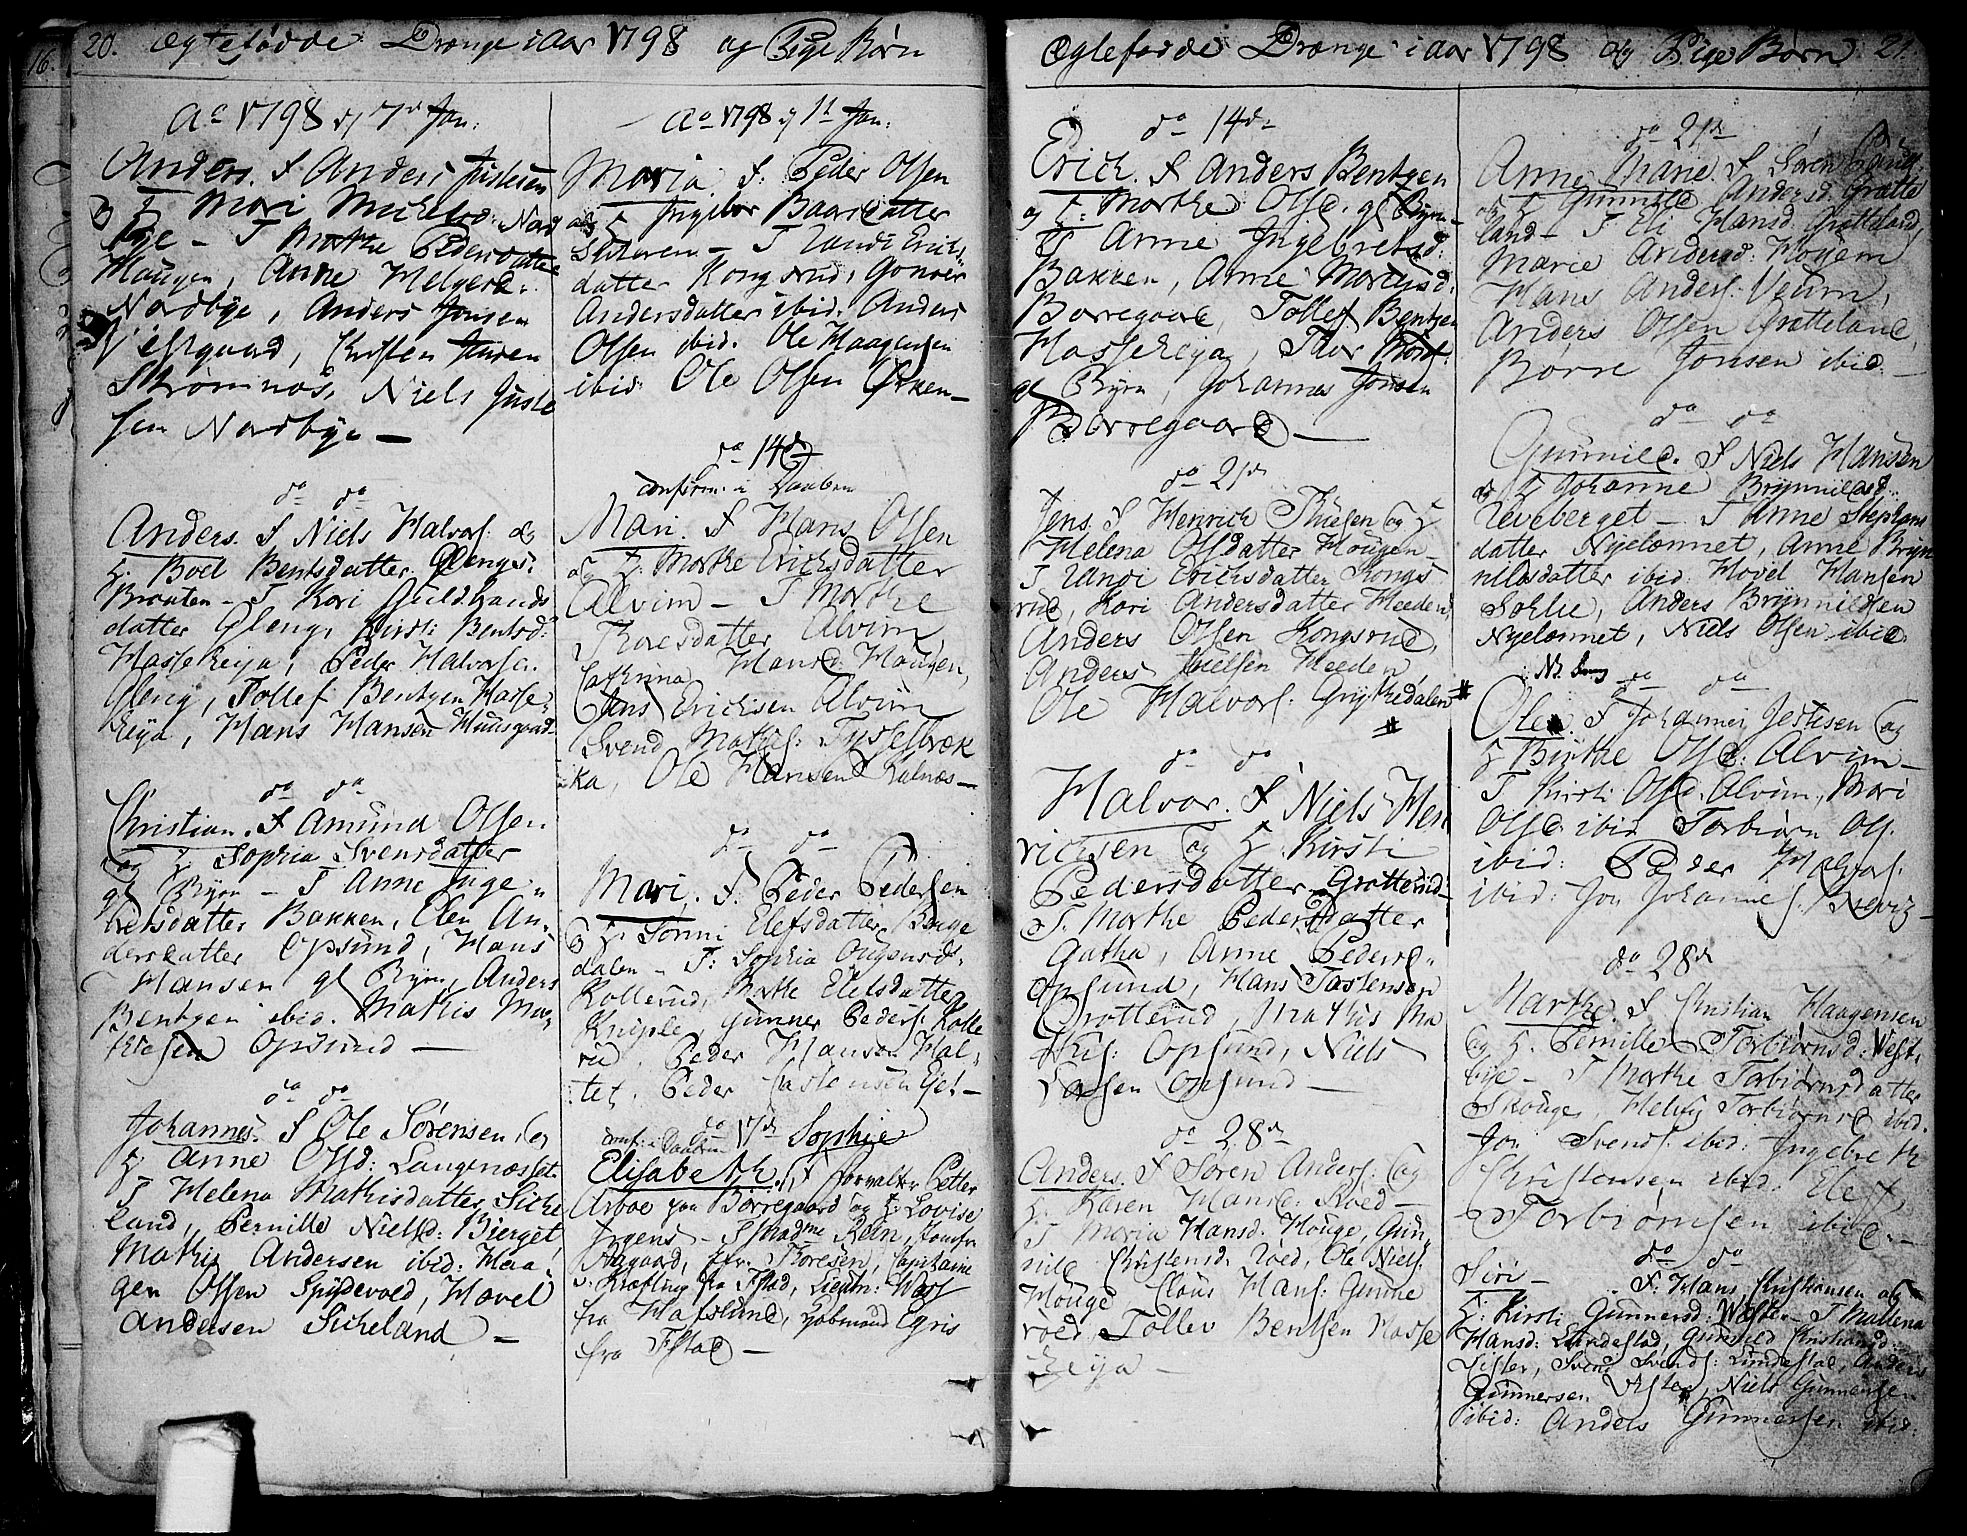 20. Ægtefødde Drænge i Aar 1798 og Pige Børn
Ao 1798 d 7d Jan:
Anders. F Anders Justesen
og H. Mari Michelsd: Nord
bye – F Marthe Pedersdatter
Haugen, Anne Helgesd:
Nordbye, Anders Jonsen
Visgaard, Christen Juren
Strømnæs, Niels Juste
sen Nordbye –
do do
Anders. F Niels Halvors. og
H. Boel Bentsdatter Glengs-
Braaten – F Kari Guldbrands
datter Gleng, Kirsti Bentsd:
Hasleeya, Peder Halvorsen
Gleng, Tollef Bentsen Hasle
eya, Hans Hansen Huusgaard
do do
Christian. F Amund Olsen
og H. Sophia Svensdatter
gl Byen – F Anne Inge-
bretsdatter Bakken, Elen An-
dersdatter Opsund, Hans
Hansen gl Byen, Anders
Bentzen ibid. Mathis Ma-
thiesen Opsund –
do do
Johannes. F Ole Sørensen, og
H. Anne Olsd: Langenæsset
F Helena Mathisdatter Siche
land, Pernille Nielsd: Bierget
Mathis Andersen ibid: Haa-
gen Olsen Spydevold, Hovel
Andersen Sicheland –
Ao 1798 d 1t Jan:
Maria. F: Peder Olsen
og H. Ingebor Baarsdatter
Slotteren – F Randi Erics-
datter Kongsrud, Gonner
Andersdatter ibid. Anders
Olsen ibid. Ole Haagensen
ibid: Ole Olsen Ørken –
do 14de
confirm: i Daaben
Mari. F Hans Olsen
og H: Marthe Ericksdatter
Alvim – F Marthe
Thoresdatter Alvim,
Cathrina Hansd: Haugen,
Jens Ericksen Alvim
Svend Mathis: Tyssesbæk
ika, Ole Hansen Kalnæs –
do do
Mari. F. Peder Pedersen
og H. Tønni Elefsdatter Borge
dalen – F: Sophia Ougunsd:
Kollerud, Marthe Elefsdatter
Kniple, Gunner Peders: Kolle
rud, Peder Hansen Hal-
tet, Peder Castensen Eget –
do 17de Sophie
conf: i Daaben
Elisabeth. F forvalter Petter
Arboe paa Borregaard og H. Lovise
Jrgens – F Madme Rein, Jomfr
Aagaard, Hr. Thoresen, Capitaine
v. Krafting fra Istad, Lieutn: Wors
fra Hafslund, Kiøbmand Egris
fra Fstad –
Ægtefødde Drænge i Aar 1798 og Pige Børn 21.
do 14de
Erich. F Anders Bentzen
og H: Marthe Olsd. gl Byen –
F Anne Ingebretsd:
Bakken, Anne Mortensd.
Borregaard, Tollef Bentzen
Hassleeya, Thor Thors:
gl Byen, Johannes Jonsen
Borregaard –
do 21de
Jens. F Henrich Thiesen og H
Helena Olsdatter Hougen –
F Randi Ericksdatter Kongs
rud, Kari Andersdatter Heeden,
Anders Olsen Kongsrud,
Anders Juelsen Heeden
Ole Halvors. Grytkedalen #
#
do do
Halvor. F Niels Hen
richsen og H. Kirsti
Pedersdatter Grotterud –
F. Marthe Pedersdatter
Gatha, Anne Pedersd:
Opsund, Hans Tostensen
Grotterud, Mathis Ma
this: Opsund, Niels
Larsen Opsund –
do 28de
Anders. F Søren Anders: og
H. Karen Hansd: Roed –
F Maria Hansd. Houge, Gun-
nild Christensd. Roed, Ole Niels:
Houge Claus Hans: Gunne
roed, Tollev Bentsen Hasse
leeya –
do 21de
Anne Marie. F Sören
og H. Gunnild Andersd: Grætte
land – F Eli Hansd. Grætteland,
Marie Andersd: Houem
Hans Anders: Veum,
Anders Olsen Grætteland,
Børre Jonsen ibid –
do do
Gunnild. F Niels Hansen
og H. Johanne Brynnildsd:
Reveberget – F Anne Stephens
datter Nyelønnet, Anne Bryn
nildsdatter ibid: Hovel Hansen
Solbe, Anders Brynnildsen
Nyelønnet, Niels Olsen ibid.
do do
Olea. F Johannes Jensen og
H Birthe Olsd: Alvim –
F Kirsti Olsd. Alvim, Mari
Olsd: ibid Torbiørn Ols.
ibid: Peder Halvors.
ibid: Jon Johannes:
do 28de
Marthe. F Christian Haagensen
og H. Pernille Torbiørnsd: Vest-
bye – F Marthe Torbiørnsdatter
Skouge, Helvig Torbiørnsd ibid.
Jon Svends: ibid: Ingebreth
Christensen ibid. Elef
Torbiørnsen ibid. –
do do
Siri – F. Hans Christiansen og
H: Kirsti Gunnersd: Wister – F Mallena
Hansd: Lundestad, Gunnild Christiansd:
Sister, Svend Svends: Lundestad, Anders
Gunnersen Vister, Niels Gunnersen
ibid: Anders Gunnersen ibid: